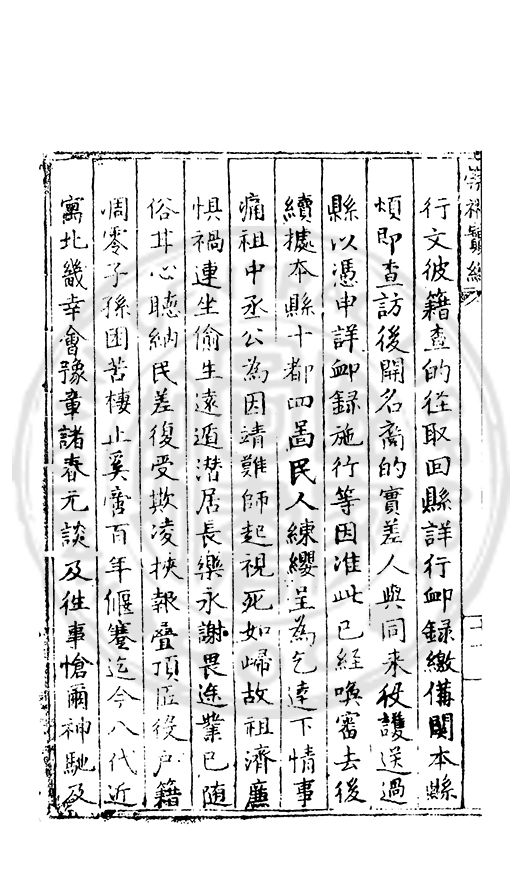 行文彼籍查的徑取回縣詳行卹録繳偹関本縣
煩即查訪後開名裔的實差人與同来役護送過
縣以憑申詳卹録施行等因准此已經喚審去後
續據本縣十都四啚民人練纓呈為乞達下情事
痛祖中丞公為因靖難師起視死如歸故祖濟廉
惧禍連坐偷生遠遁潜居長樂永謝畏途業已随
俗甘心聴納民差復受欺凌挾報叠頂匠役戸籍
凋零子孫困苦棲止奚啻百年偃蹇迄今八代近
寓北畿幸會豫章諸春元談及徃事愴爾神馳及